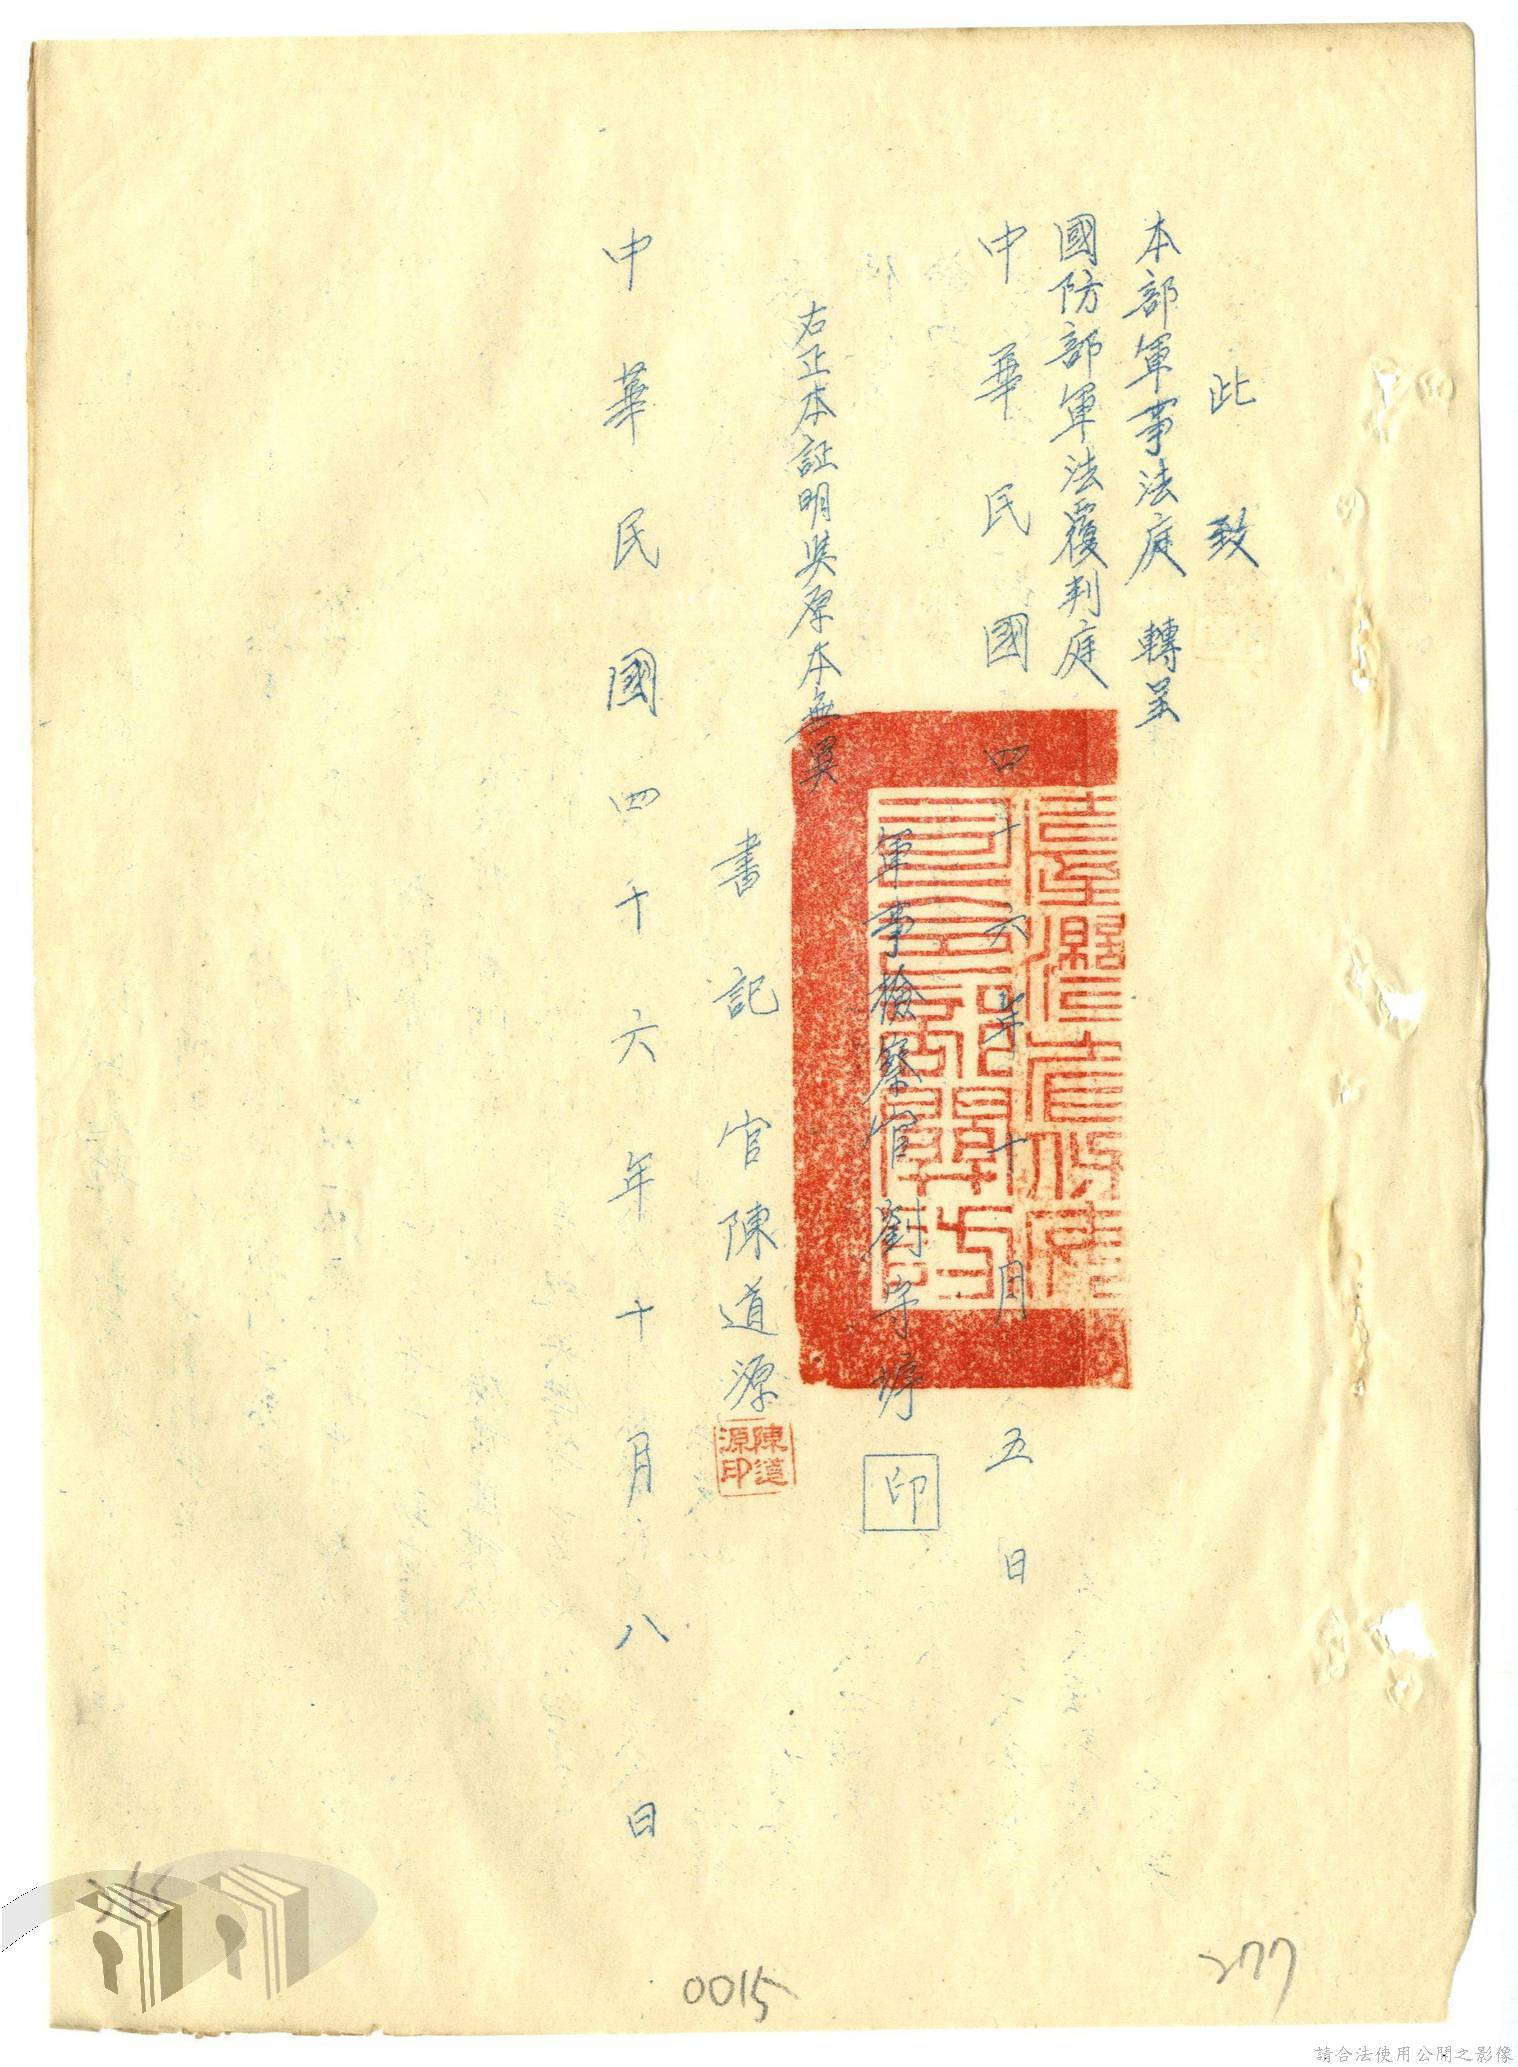 此致
本部軍事法庭 轉呈
國防部軍法覆判庭
中華民國四十六年十月五日
軍事檢察官劉 印
臺灣省保安
司令部關防
右正本証明與原本無異
書記官陳道源
陳道源印
中華民國四十六年十月八日
277
0015
請合法使用公開之影像